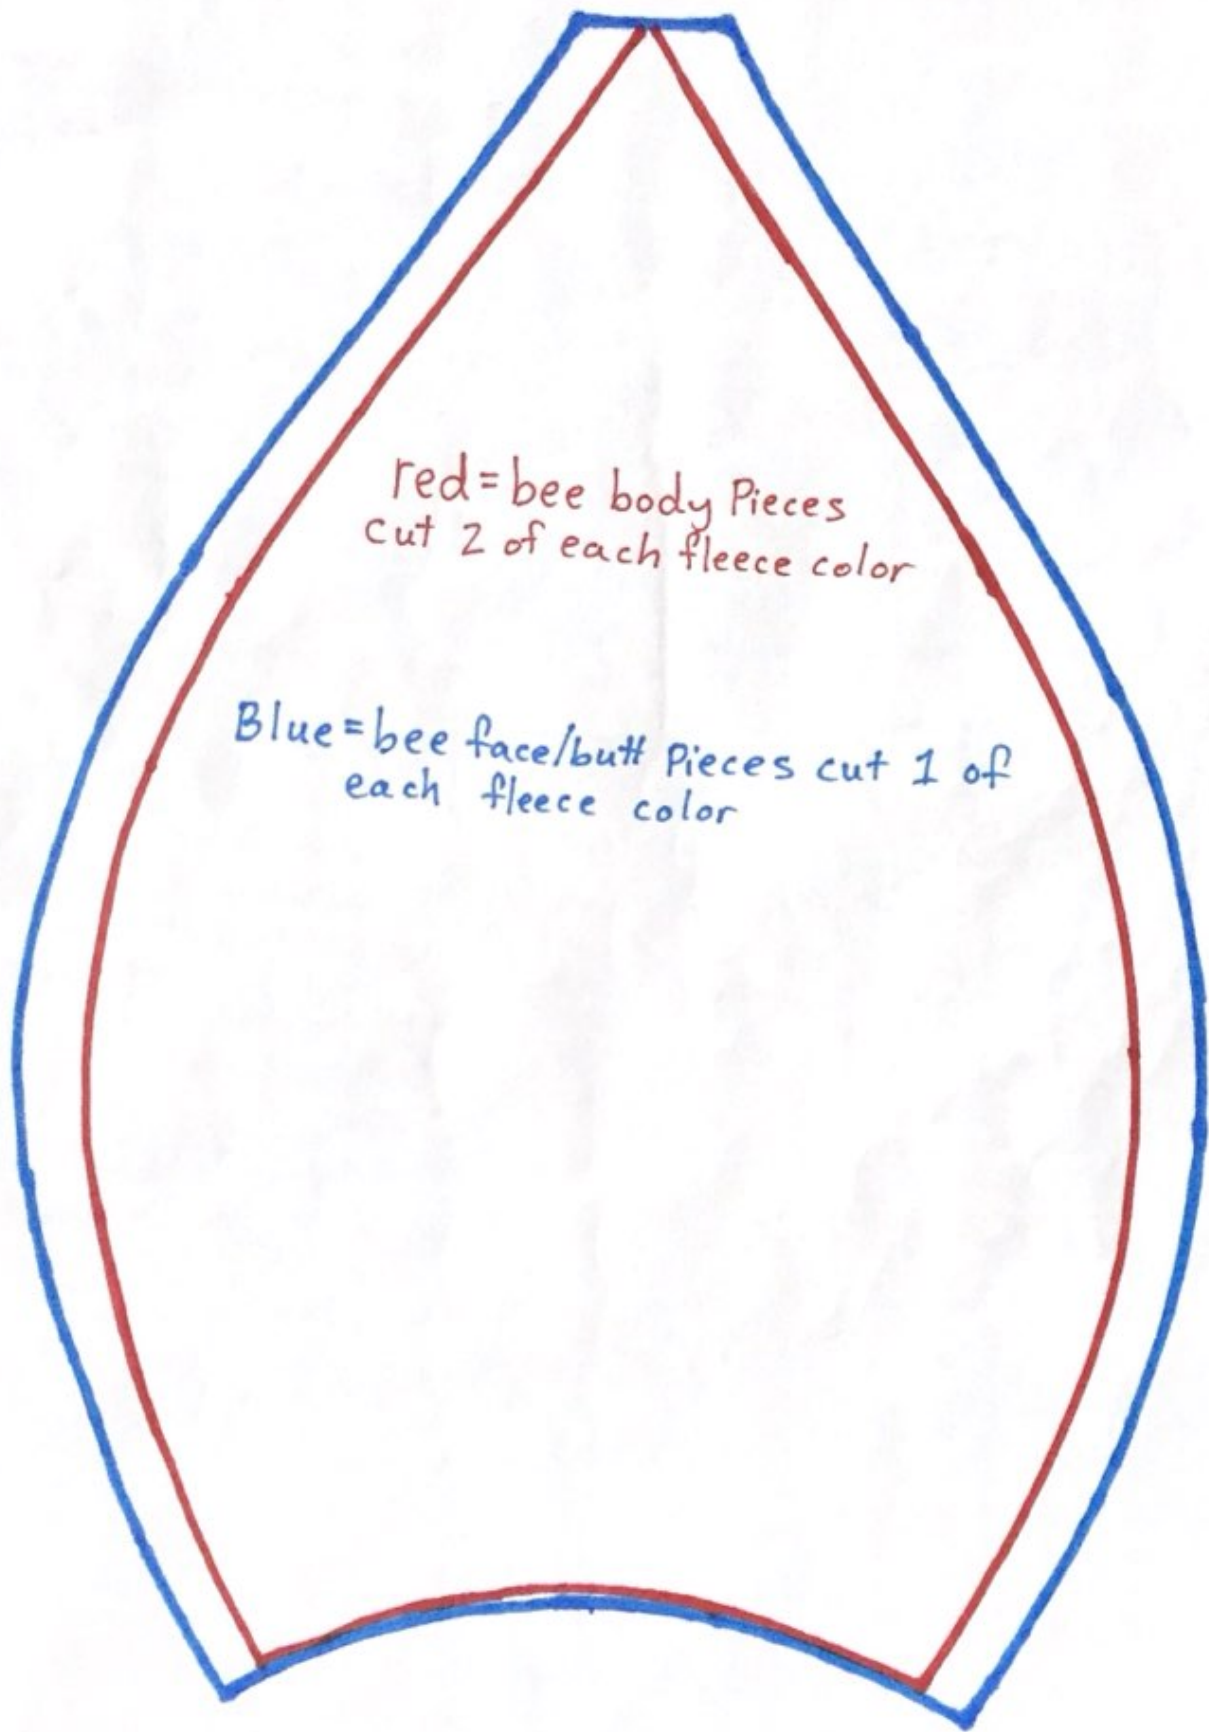 red=bee body Pieces
cut 2 of each fleece color
Blue=bee face/butt Pieces cut 1 of
each fleece color